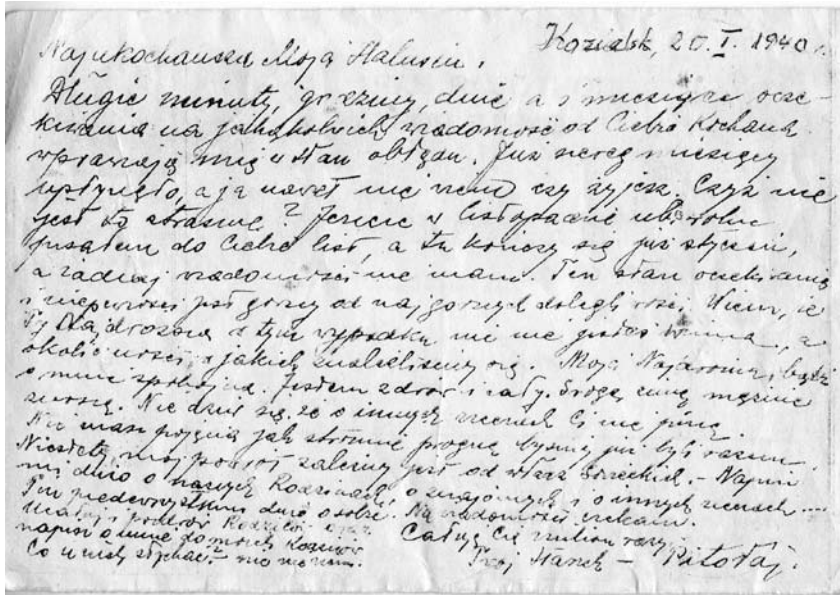 Kozielsk, 20.I. 1940 r.
Najukochańsza Moja Halusiu.
Długie minuty, godziny, dnie a i miesiące ocze-
kiwania na jakąkolwiek wiadomość od Ciebie Kochana
wprawiają mię w stan obłędu. Już szereg miesięcy
upłynęło, a ja nawet nie wiem czy żyjesz. Czyż nie
jest to straszne? Jeszcze w listopadzie ub. roku
pisałem do Ciebie list, a tu kończy się już styczeń,
a żadnej wiadomości nie mam. Ten stan oczekiwania
i niepewności jest gorszy od najgorszych dolegliwości. Wiem, że
Ty Najdroższa w tym wypadku nic nie jesteś winna, a
okoliczności w jakich znaleźliśmy się. Moja Najdroższa, bądź
o mnie spokojna. Jestem zdrów i cały. mężnie
znoszę. Nie dziw się, że o innych rzeczach Ci nie piszę
Nie masz pojęcia jak strasznie pragnę byśmy już byli razem.
Niestety, mój powrót zależny jest od władz Sowieckich. - Napisz
mi dużo o naszych Rodzinach, o znajomych i o innych rzeczach ....
Ten przedewszystkim dużo o sobie. Na wiadomości czekam.
Ucałuj i pozdrów Rodziców
napisz o mnie do moich Rodziców
Całuję Cię milion razy
Co u nich słychać? nic nie wiem.
Twój Stach -